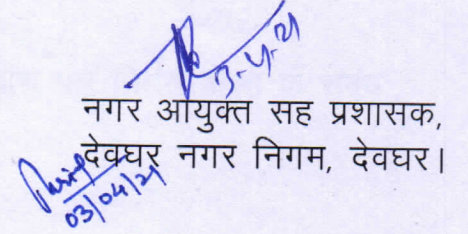 3-4-21
नगर आयुक्त सह प्रशासक,
देवघर नगर निगम, देवघर।
03/04/21